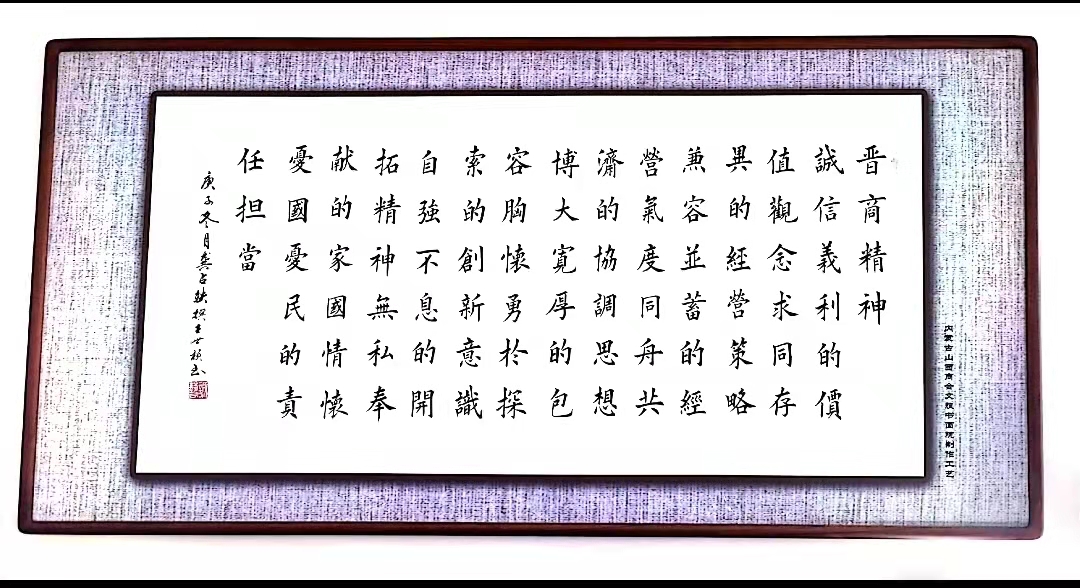 晋商精神
誠信義利的價
值觀念求同存
異的經營策略
兼容並蓄的經
營氣度同舟共
濟的協調思想
博大寬厚的包
容胸懷勇於探
索的創新意識
自強不息的開
拓精神無私奉
献的家國情懷
憂國憂民的責
任担當
庚子冬月龔占
内蒙古山西商会文版书画院制作工艺